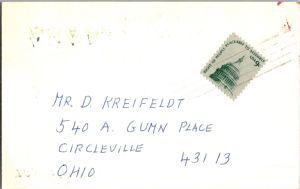 MR. D. KREIFELDT
540 A. GUMN PLACE
CIRCLEVILLE
OHIO 43113